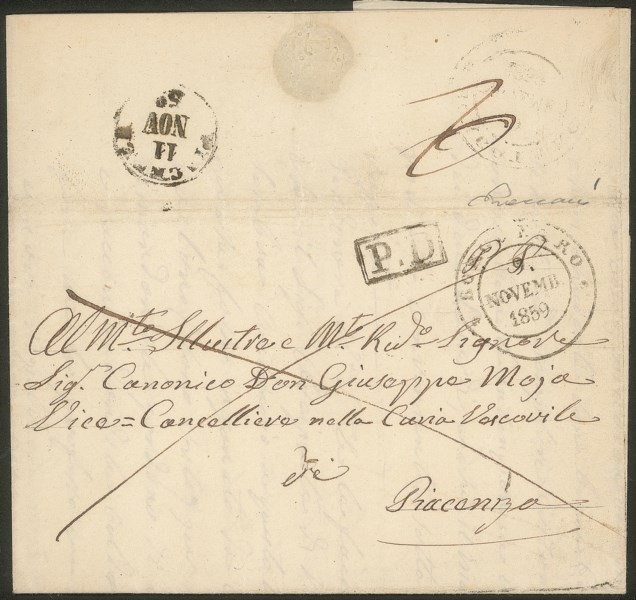 PIACENZA
11
NOV
59
P.D.
9.
NOVEMB
1859
Al Mto. Illustre e Mt. Rdo. Signore
Sigr. Canonico Don Giuseppe Moja
Vice=Cancelliere nella Curia Vescovile
di
Piacenza